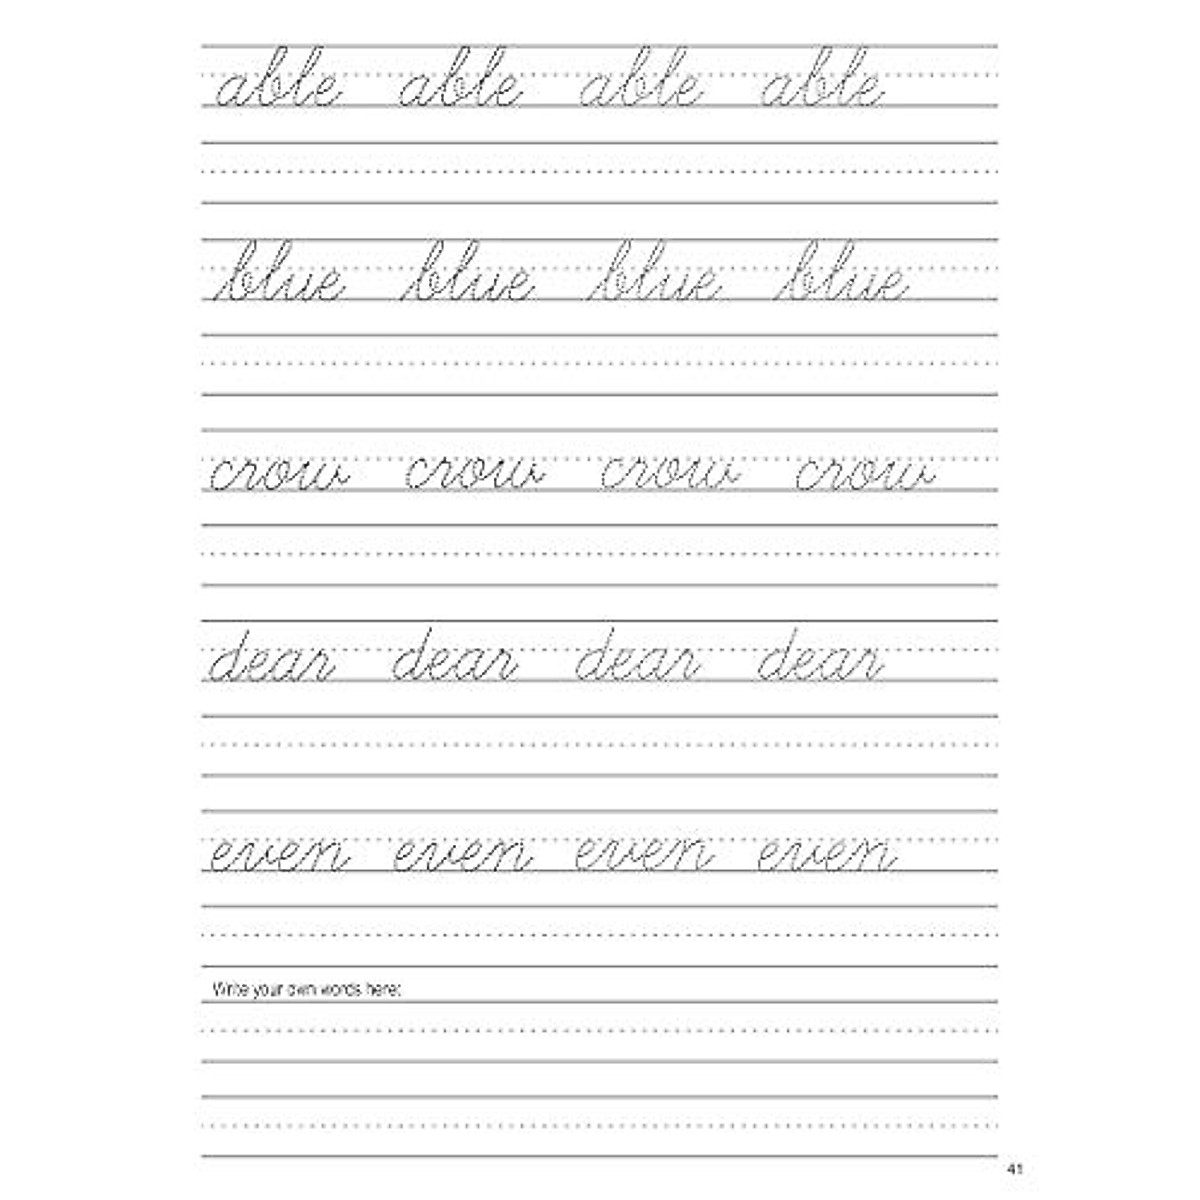 able able able able
blue blue blue blue
crow crow crow crow
dear dear dear dear
even even even even
Write your own words here:
41